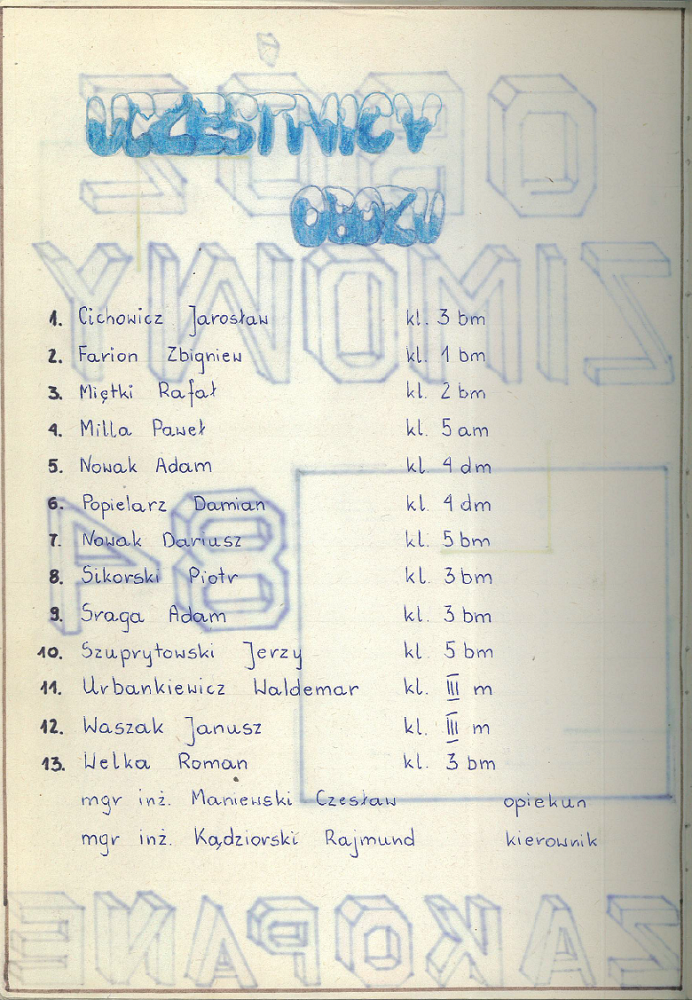 UCZESTNICY
OBOZU
1. Cichowicz Jarosław kl. 3 bm
2. Farion Zbigniew kl. 1 bm
3. Miętki Rafał kl. 2 bm
4. Milla Paweł kl. 5 am
5. Nowak Adam kl. 4 dm
6. Popielarz Damian kl. 4 dm
7. Nowak Dariusz kl. 5 bm
8. Sikorski Piotr kl. 3 bm
9. Sraga Adam kl. 3 bm
10. Szuprytowski Jerzy kl. 5 bm
11. Urbankiewicz Waldemar kl. III m
12. Waszak Janusz kl. III m
13. Welka Roman kl. 3 bm
mgr inż. Maniewski Czesław opiekun
mgr inż. Kądziorski Rajmund kierownik
OBÓZ
ZIMOWY
84
ZAKOPANE